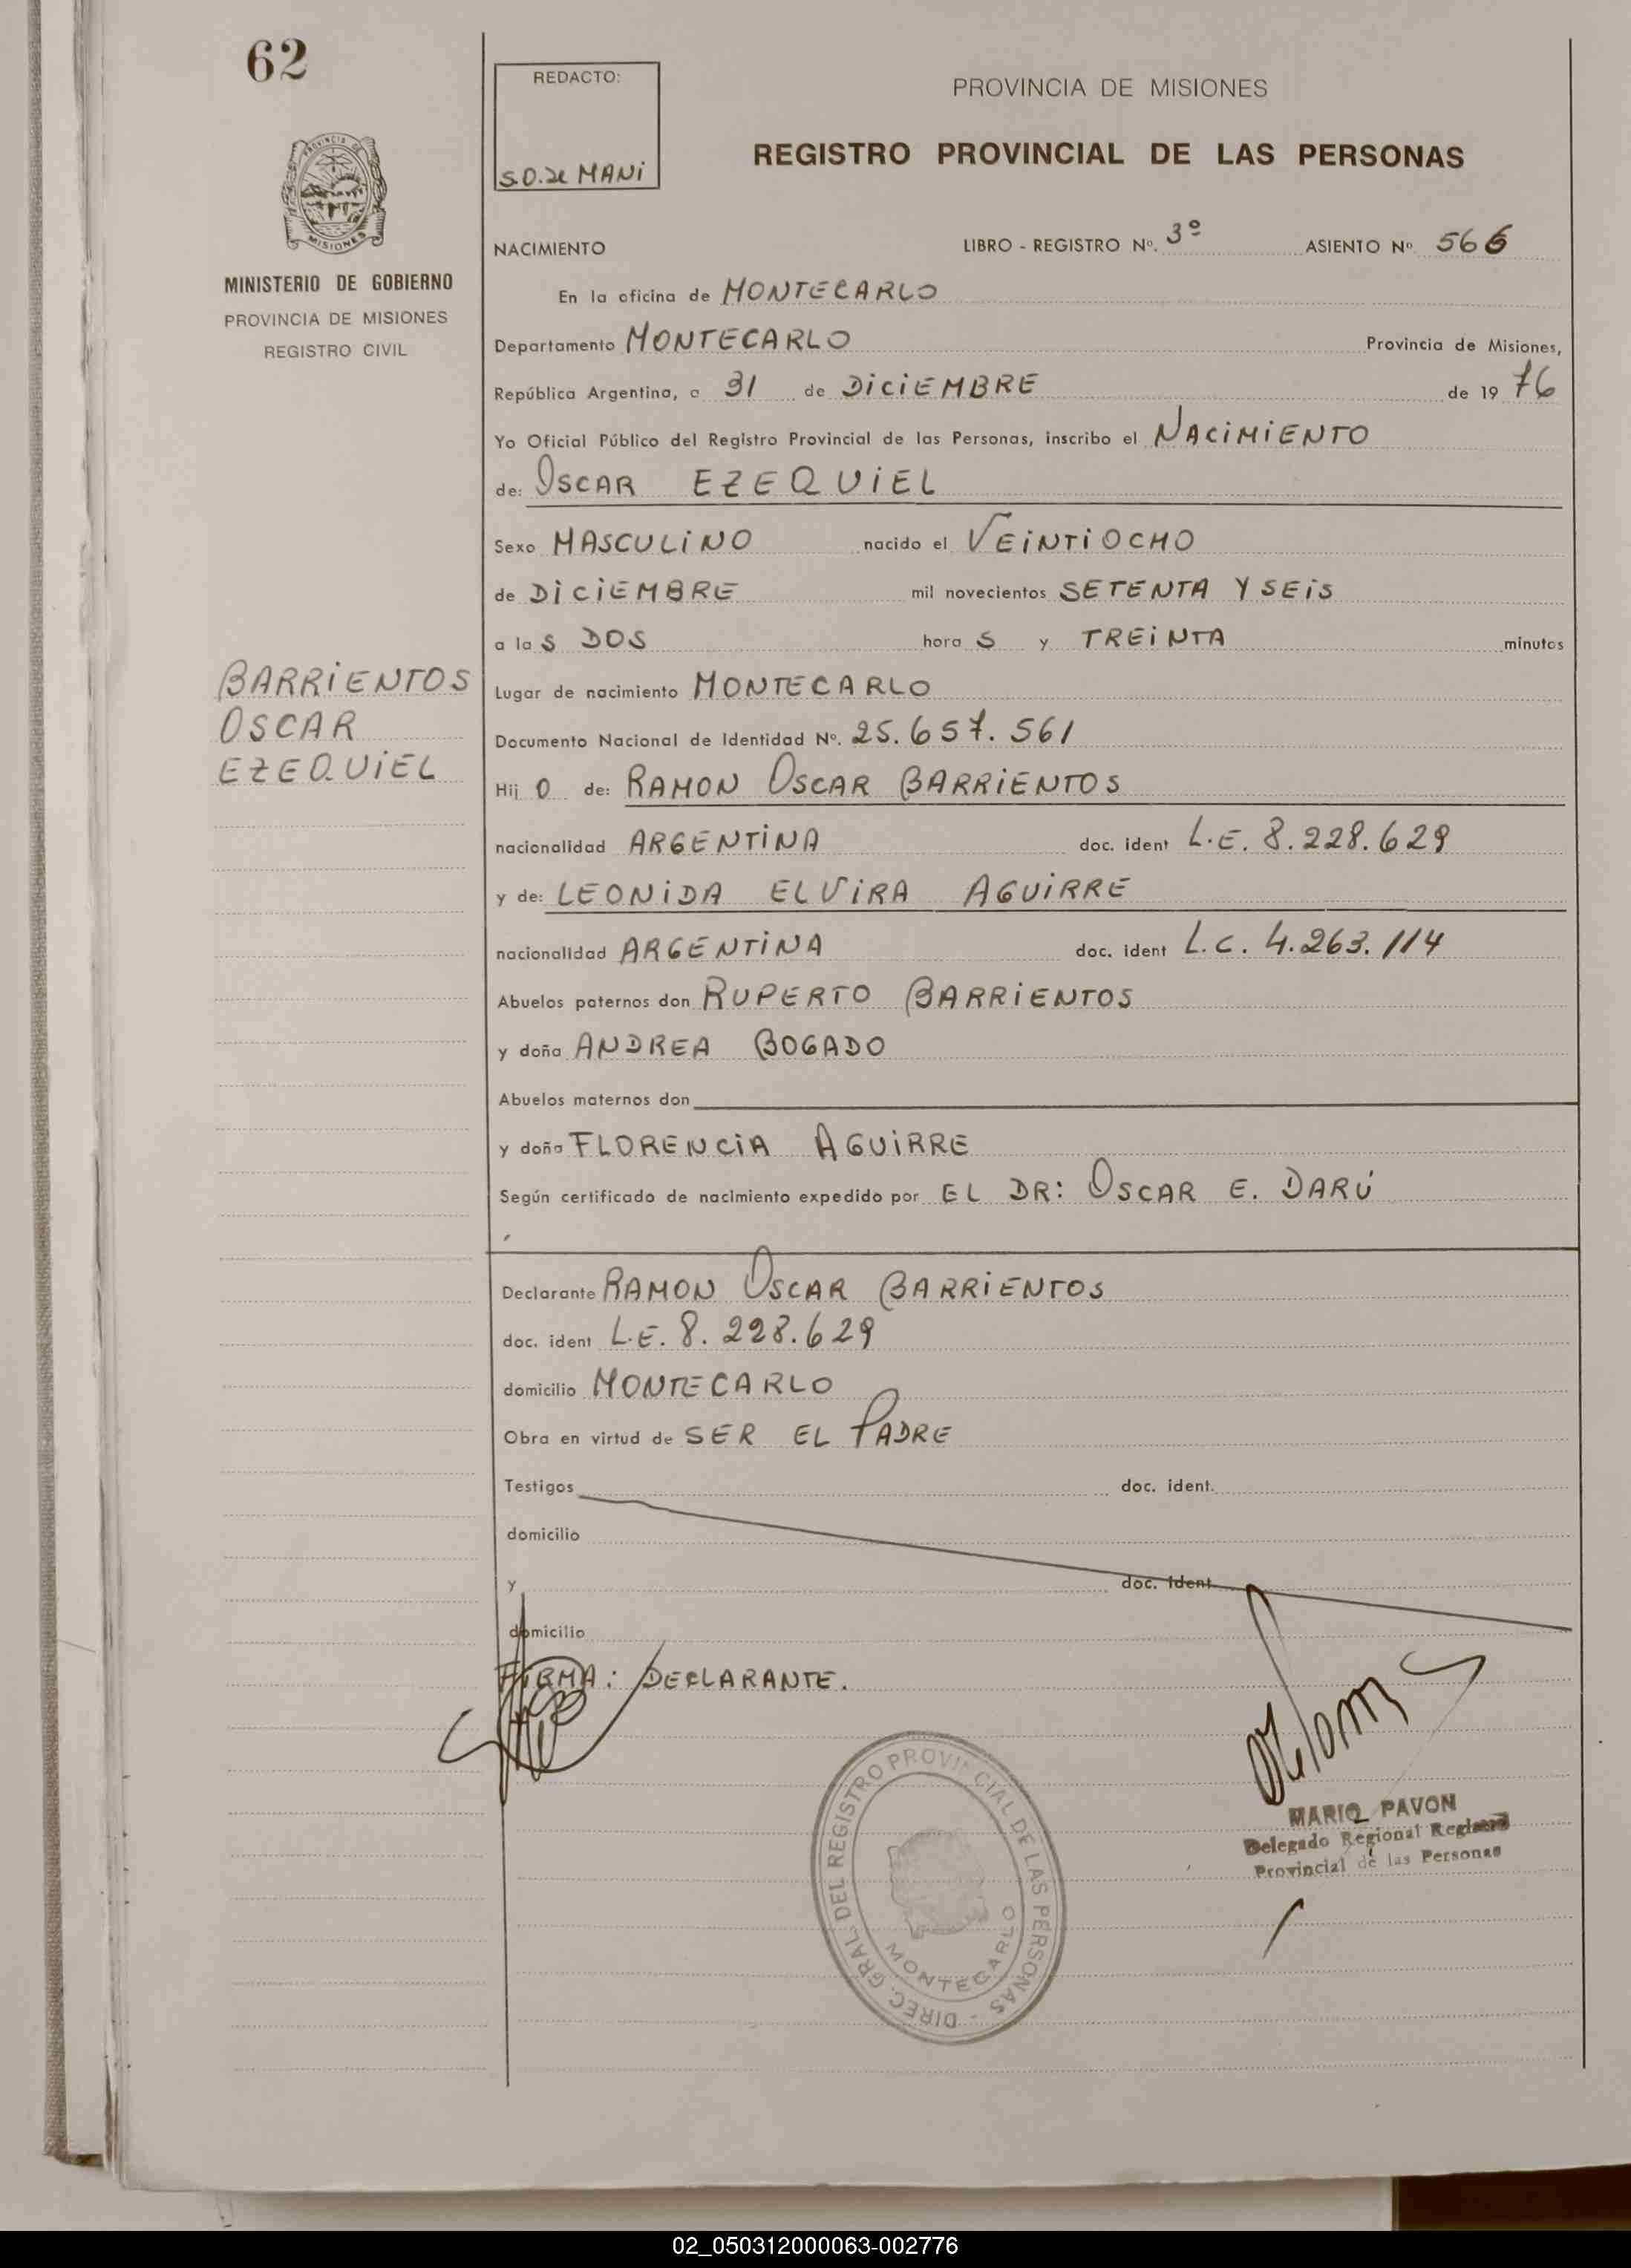 62
REDACTO:
S.O. de MANI
PROVINCIA DE MISIONES
REGISTRO PROVINCIAL DE LAS PERSONAS
PROVINCIA DE
MISIONES
MINISTERIO DE GOBIERNO
PROVINCIA DE MISIONES
REGISTRO CIVIL
NACIMIENTO LIBRO - REGISTRO Nº. 3º ASIENTO Nº 566
En la oficina de MONTECARLO
Departamento MONTECARLO Provincia de Misiones,
República Argentina, a 31 de DICIEMBRE de 19 76
Yo Oficial Público del Registro Provincial de las Personas, inscribo el NACIMIENTO
de: OSCAR EZEQUIEL
Sexo MASCULINO nacido el VEINTIOCHO
de DICIEMBRE mil novecientos SETENTA Y SEIS
a la S DOS hora S y TREINTA minutos
BARRIENTOS
OSCAR
EZEQUIEL
Lugar de nacimiento MONTECARLO
Documento Nacional de Identidad Nº. 25.657.561
Hij O de: RAMON OSCAR BARRIENTOS
nacionalidad ARGENTINA doc. ident L.E. 8.228.629
y de: LEONIDA ELVIRA AGUIRRE
nacionalidad ARGENTINA doc. ident L.C. 4.263.114
Abuelos paternos don RUPERTO BARRIENTOS
y doña ANDREA BOGADO
Abuelos maternos don
y doña FLORENCIA AGUIRRE
Según certificado de nacimiento expedido por EL DR: OSCAR E. DARÚ
Declarante RAMON OSCAR BARRIENTOS
doc. ident L.E. 8.228.629
domicilio MONTECARLO
Obra en virtud de SER EL PADRE
Testigos doc. ident.
domicilio
y doc. ident
domicilio
FIRMA: DECLARANTE.
DIREC. GRAL. DEL REGISTRO PROVINCIAL DE LAS PERSONAS -
MONTECARLO
MARIO PAVON
Delegado Regional Registro
Provincial de las Personas
02_050312000063-002776